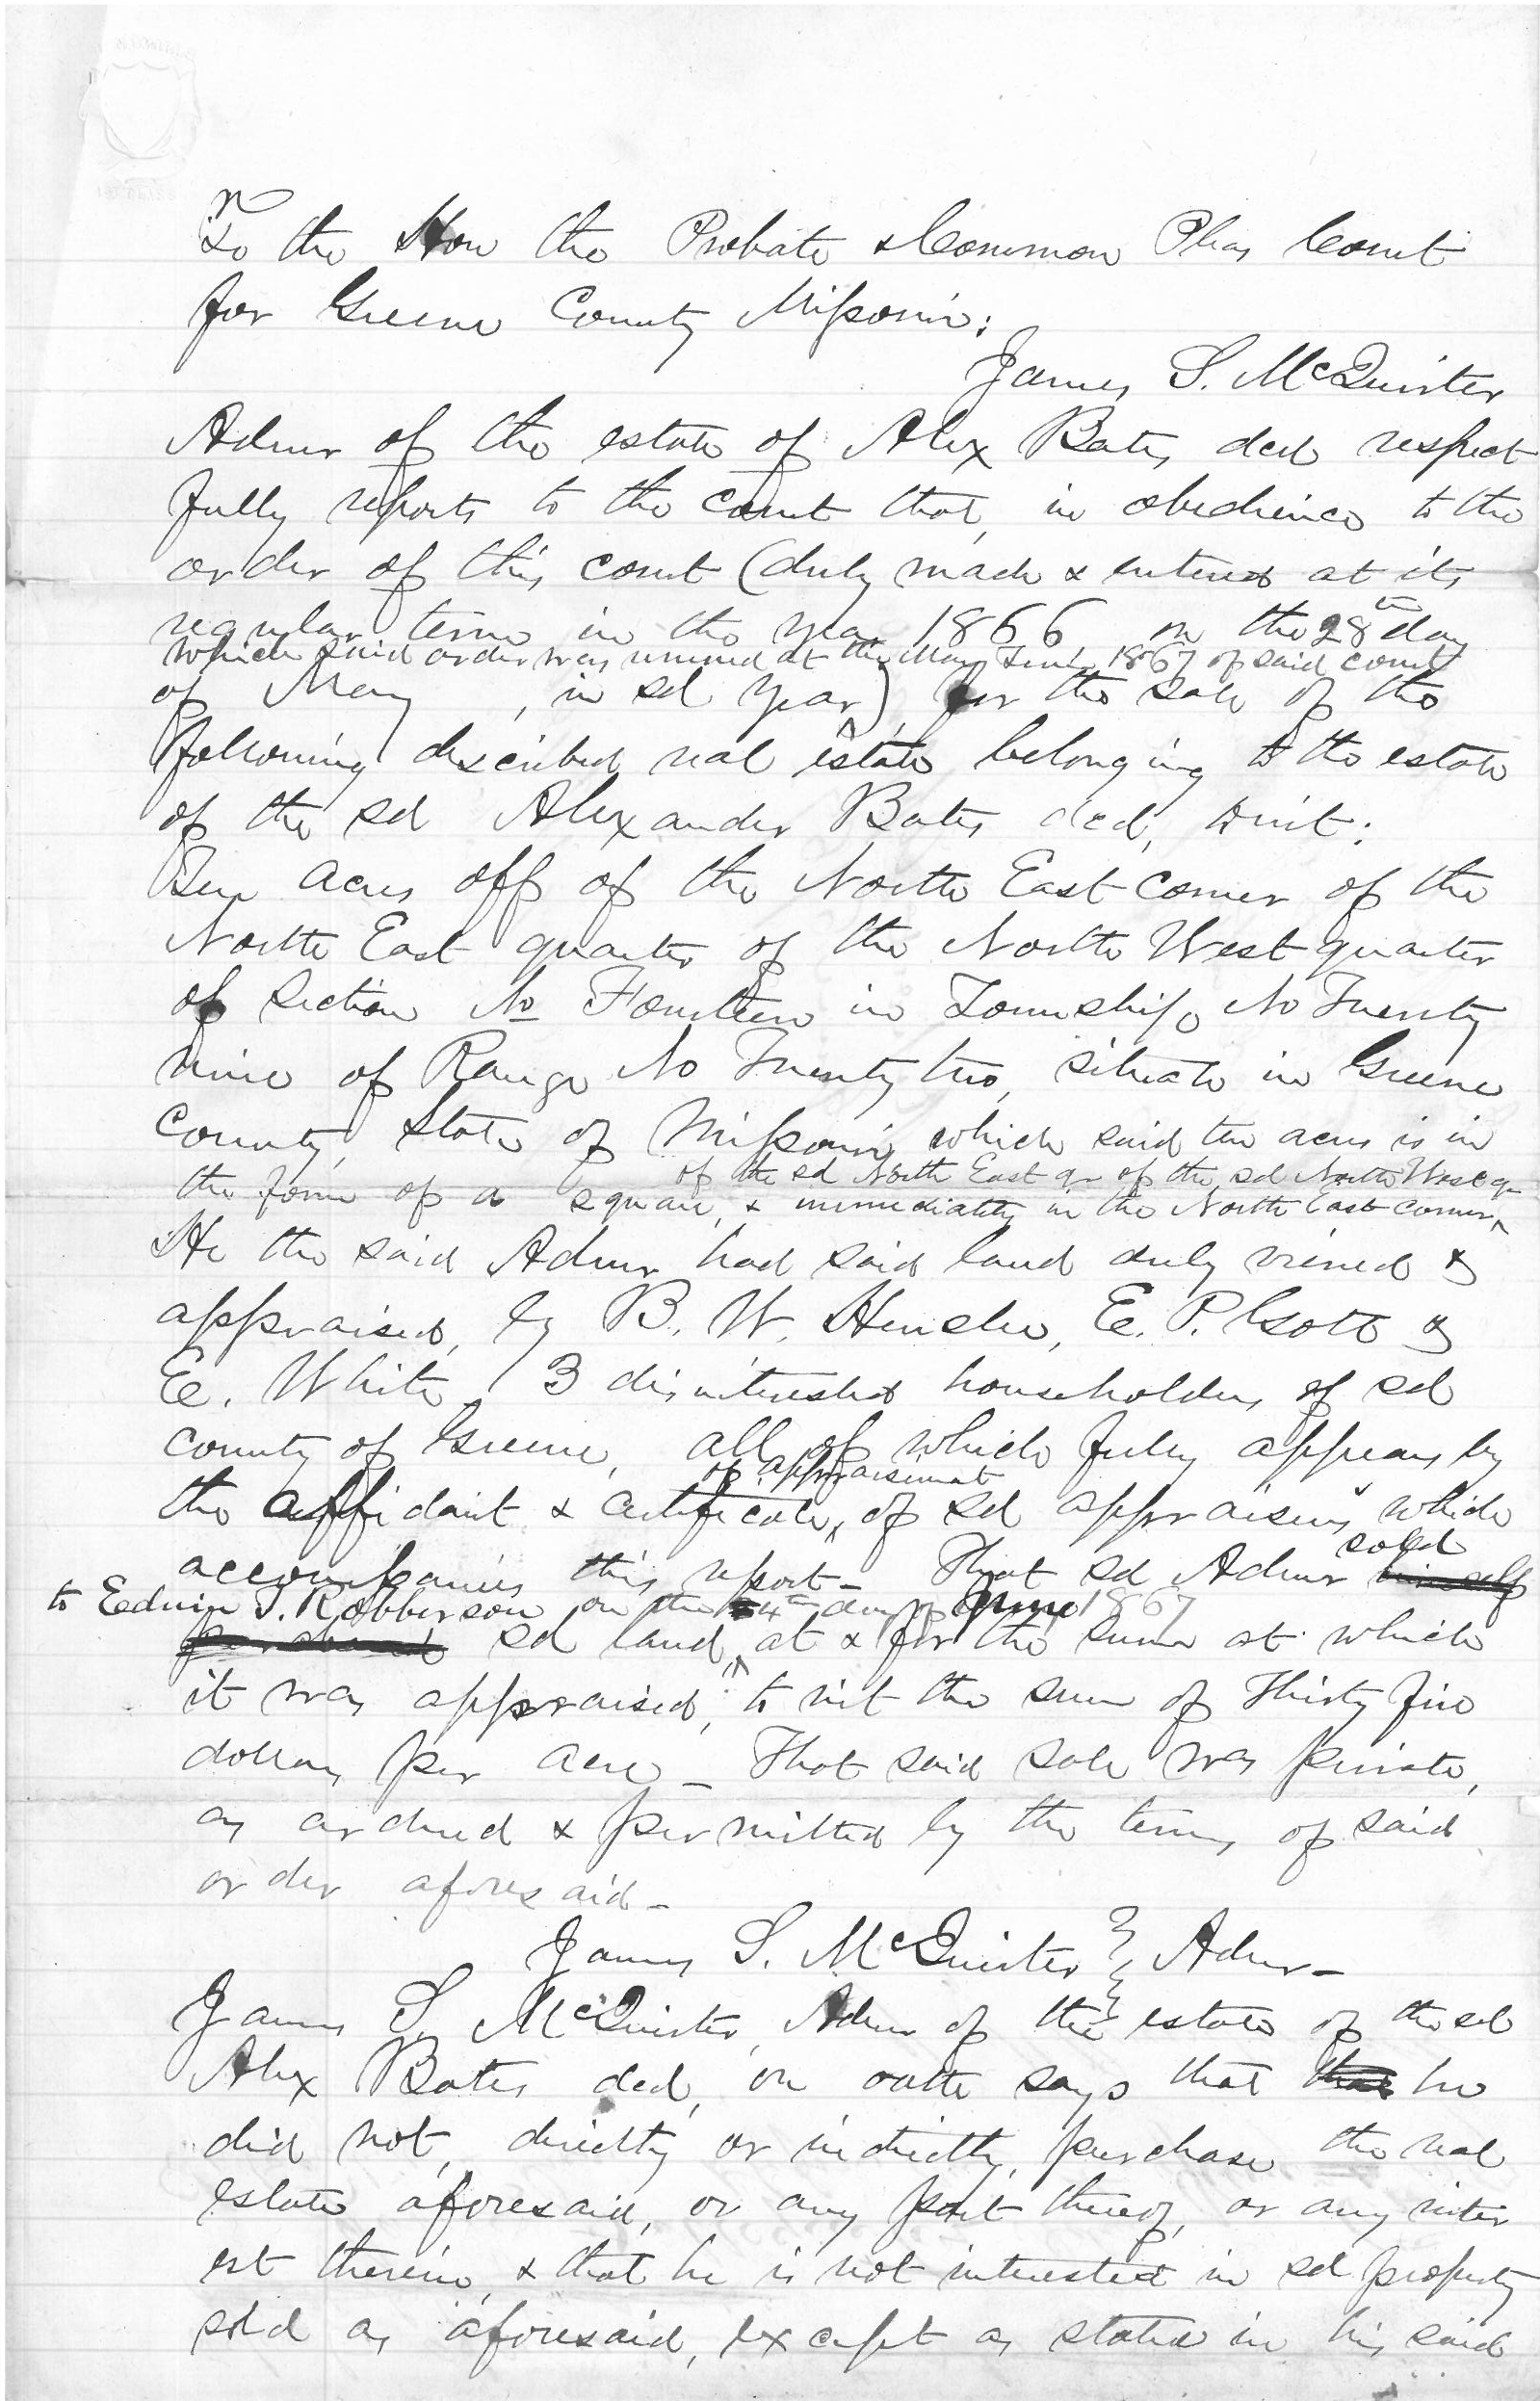 To the Hon the Probate & Common Pleas Court
for Greene County Missouri:
James S. McQuister
Admr of the estate of Alex Bates decd respect
fully reports to the Court that, in obedience to the
order of this court (duly made & entered at its
regular term in the year 1866 on the 28th day
which said order was renewed at the May Term 1867 of said court
of May, in sd year) for the sale of the
following described real estate belonging to the estate
of the sd Alexander Bates decd, towit:
Ten acres off of the North East corner of the
North East quarter of the North West quarter
of Section No Fourteen in Township No Twenty
nine of Range No Twenty two, situate in Greene
County, State of Missouri, which said ten acres is in
of the sd North East qr of the sd North West qr
the form of a square, & immediately in the North East corner
He the said Admr had said land duly viewed &
appraised, by B. W. Henslee, E. P. Gott &
E. White, 3 disinterested householders of sd
County of Greene, all of which fully appears by
of appraisement
the affidavit & certificate, of sd appraisers which
accompanies this report - That sd Admr himself
sold
to Edwin T. Robberson on the 4th day of June 1867
purchased sd land, at & for the sum at which
it was appraised, to wit the sum of Thirty five
dollars per acre - That said sale was private,
as ordered & permitted by the terms of said
order aforesaid -
James S. McQuister } Admr -
James S. McQuister, Admr of the estate of the sd
Alex Bates decd, on oath says that that he
did not, directly or indirectly, purchase the real
estate aforesaid, or any part thereof, or any inter
est therein, & that he is not interested in sd property
sold as aforesaid, except as stated in his said